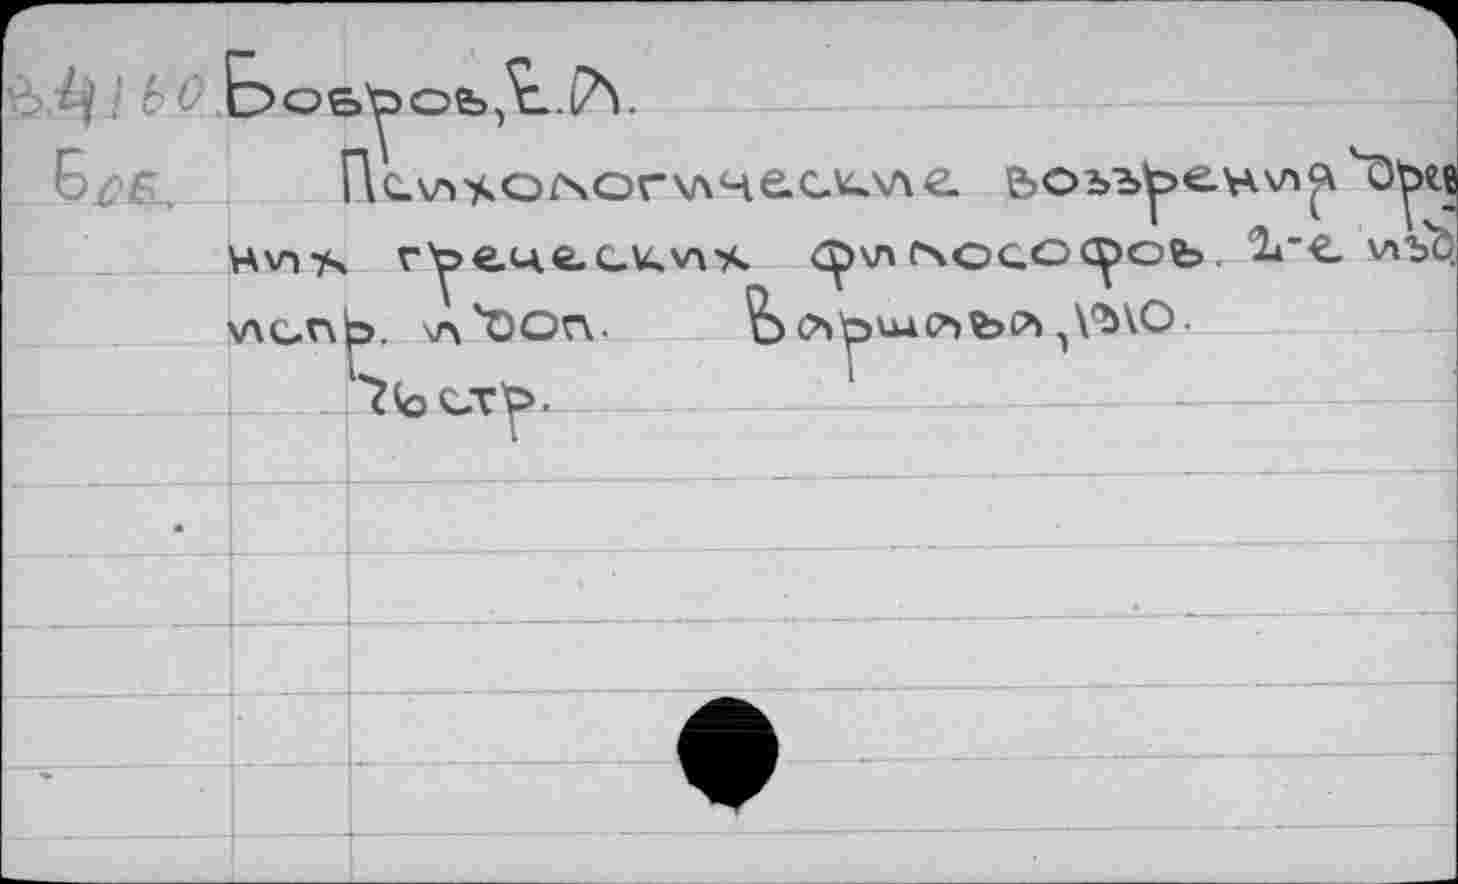 Бобров, Е.А.
Боб. Психологические воззрения древ
них греческих философов. 2-е изд.
испр. и доп. Варшава, 1910.
76 стр.